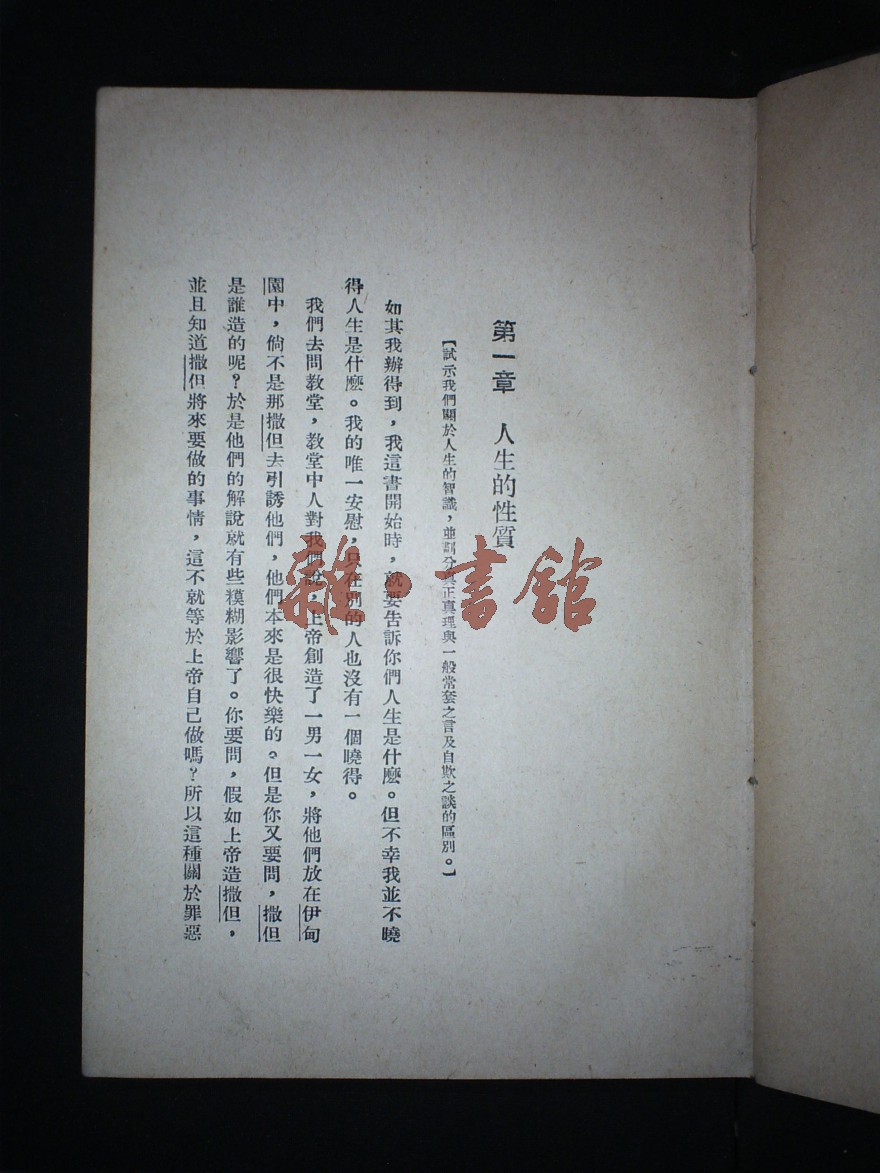 第一章　人生的性質
【試示我們關於人生的智識，並劃分真正真理與一般常套之言及自欺之談的區別。】
如其我辦得到，我這書開始時，就要告訴你們人生是什麽。但不幸我並不曉
得人生是什麽。我的唯一安慰，只在別的人也沒有一個曉得。
我們去問教堂，教堂中人對我們說，上帝創造了一男一女，將他們放在伊甸
園中，倘不是那撒但去引誘他們，他們本來是很快樂的。但是你又要問，撒但
是誰造的呢？於是他們的解說就有些糢糊影響了。你要問，假如上帝造撒但，
並且知道撒但將來要做的事情，這不就等於上帝自己做嗎？所以這種關於罪惡
雜·書館